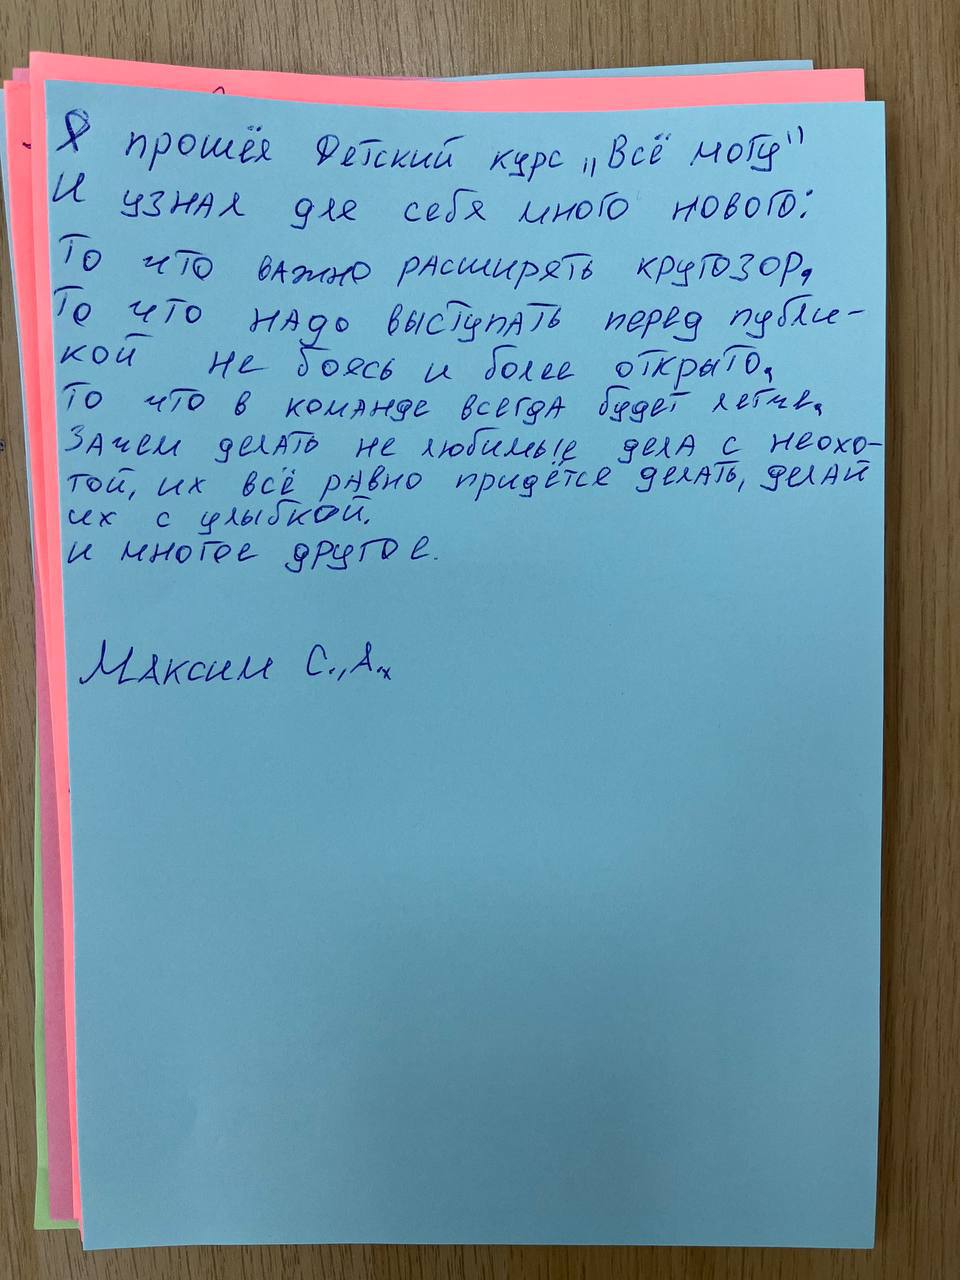 Я прошёл Детский курс „Всё могу"
И узнал для себя много нового:
То что важно расширять кругозор,
То что надо выступать перед публи-
кой не боясь и более открыто,
то что в команде всегда будет легче,
Зачем делать не любимые дела с неохо-
той, их всё равно придётся делать, делай
их с улыбкой.
и многое другое.
Максим С., А.